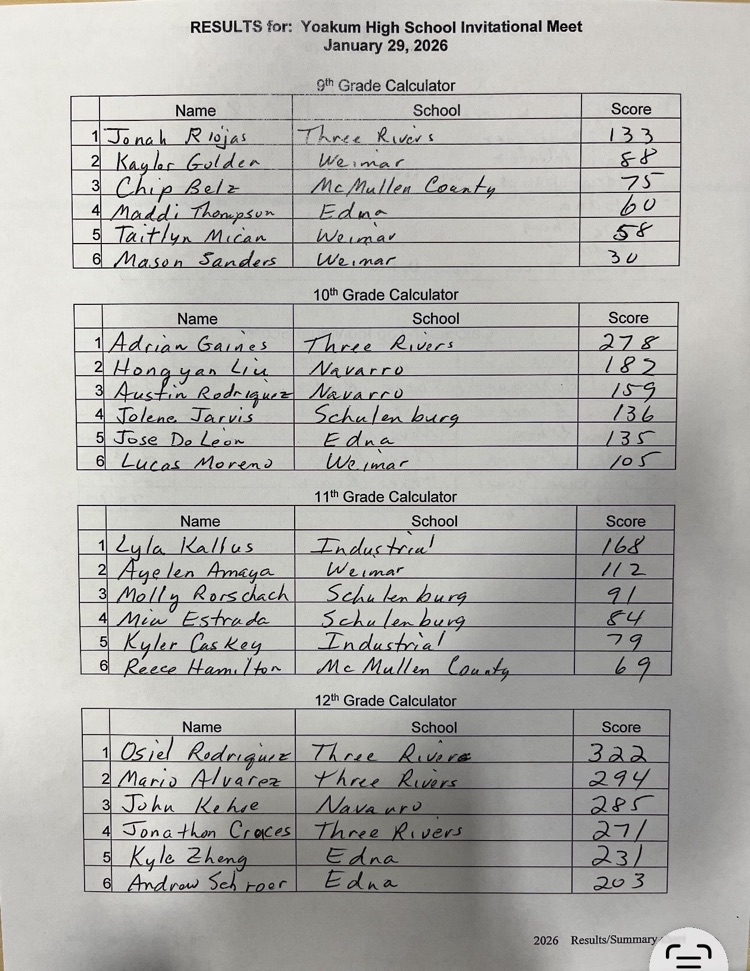 RESULTS for: Yoakum High School Invitational Meet
January 29, 2026
9th Grade Calculator
Name School Score
1 Jonah Riojas Three Rivers 133
2 Kaylor Golden Weimar 88
3 Chip Belz McMullen County 75
4 Maddi Thompson Edna 60
5 Taitlyn Mican Weimar 58
6 Mason Sanders Weimar 30
10th Grade Calculator
Name School Score
1 Adrian Gaines Three Rivers 278
2 Hongyan Liu Navarro 182
3 Austin Rodriquez Navarro 159
4 Jolene Jarvis Schulenburg 136
5 Jose De Leon Edna 135
6 Lucas Moreno Weimar 105
11th Grade Calculator
Name School Score
1 Lyla Kallus Industrial 168
2 Ayelen Amaya Weimar 112
3 Molly Rorschach Schulenburg 91
4 Mia Estrada Schulenburg 84
5 Kyler Caskey Industrial 79
6 Reece Hamilton McMullen County 69
12th Grade Calculator
Name School Score
1 Osiel Rodriquez Three Rivers 322
2 Mario Alvarez three Rivers 294
3 John Kehoe Navarro 285
4 Jonathon Craces Three Rivers 271
5 Kyle Zheng Edna 231
6 Andrew Schroer Edna 203
2026 Results/Summary